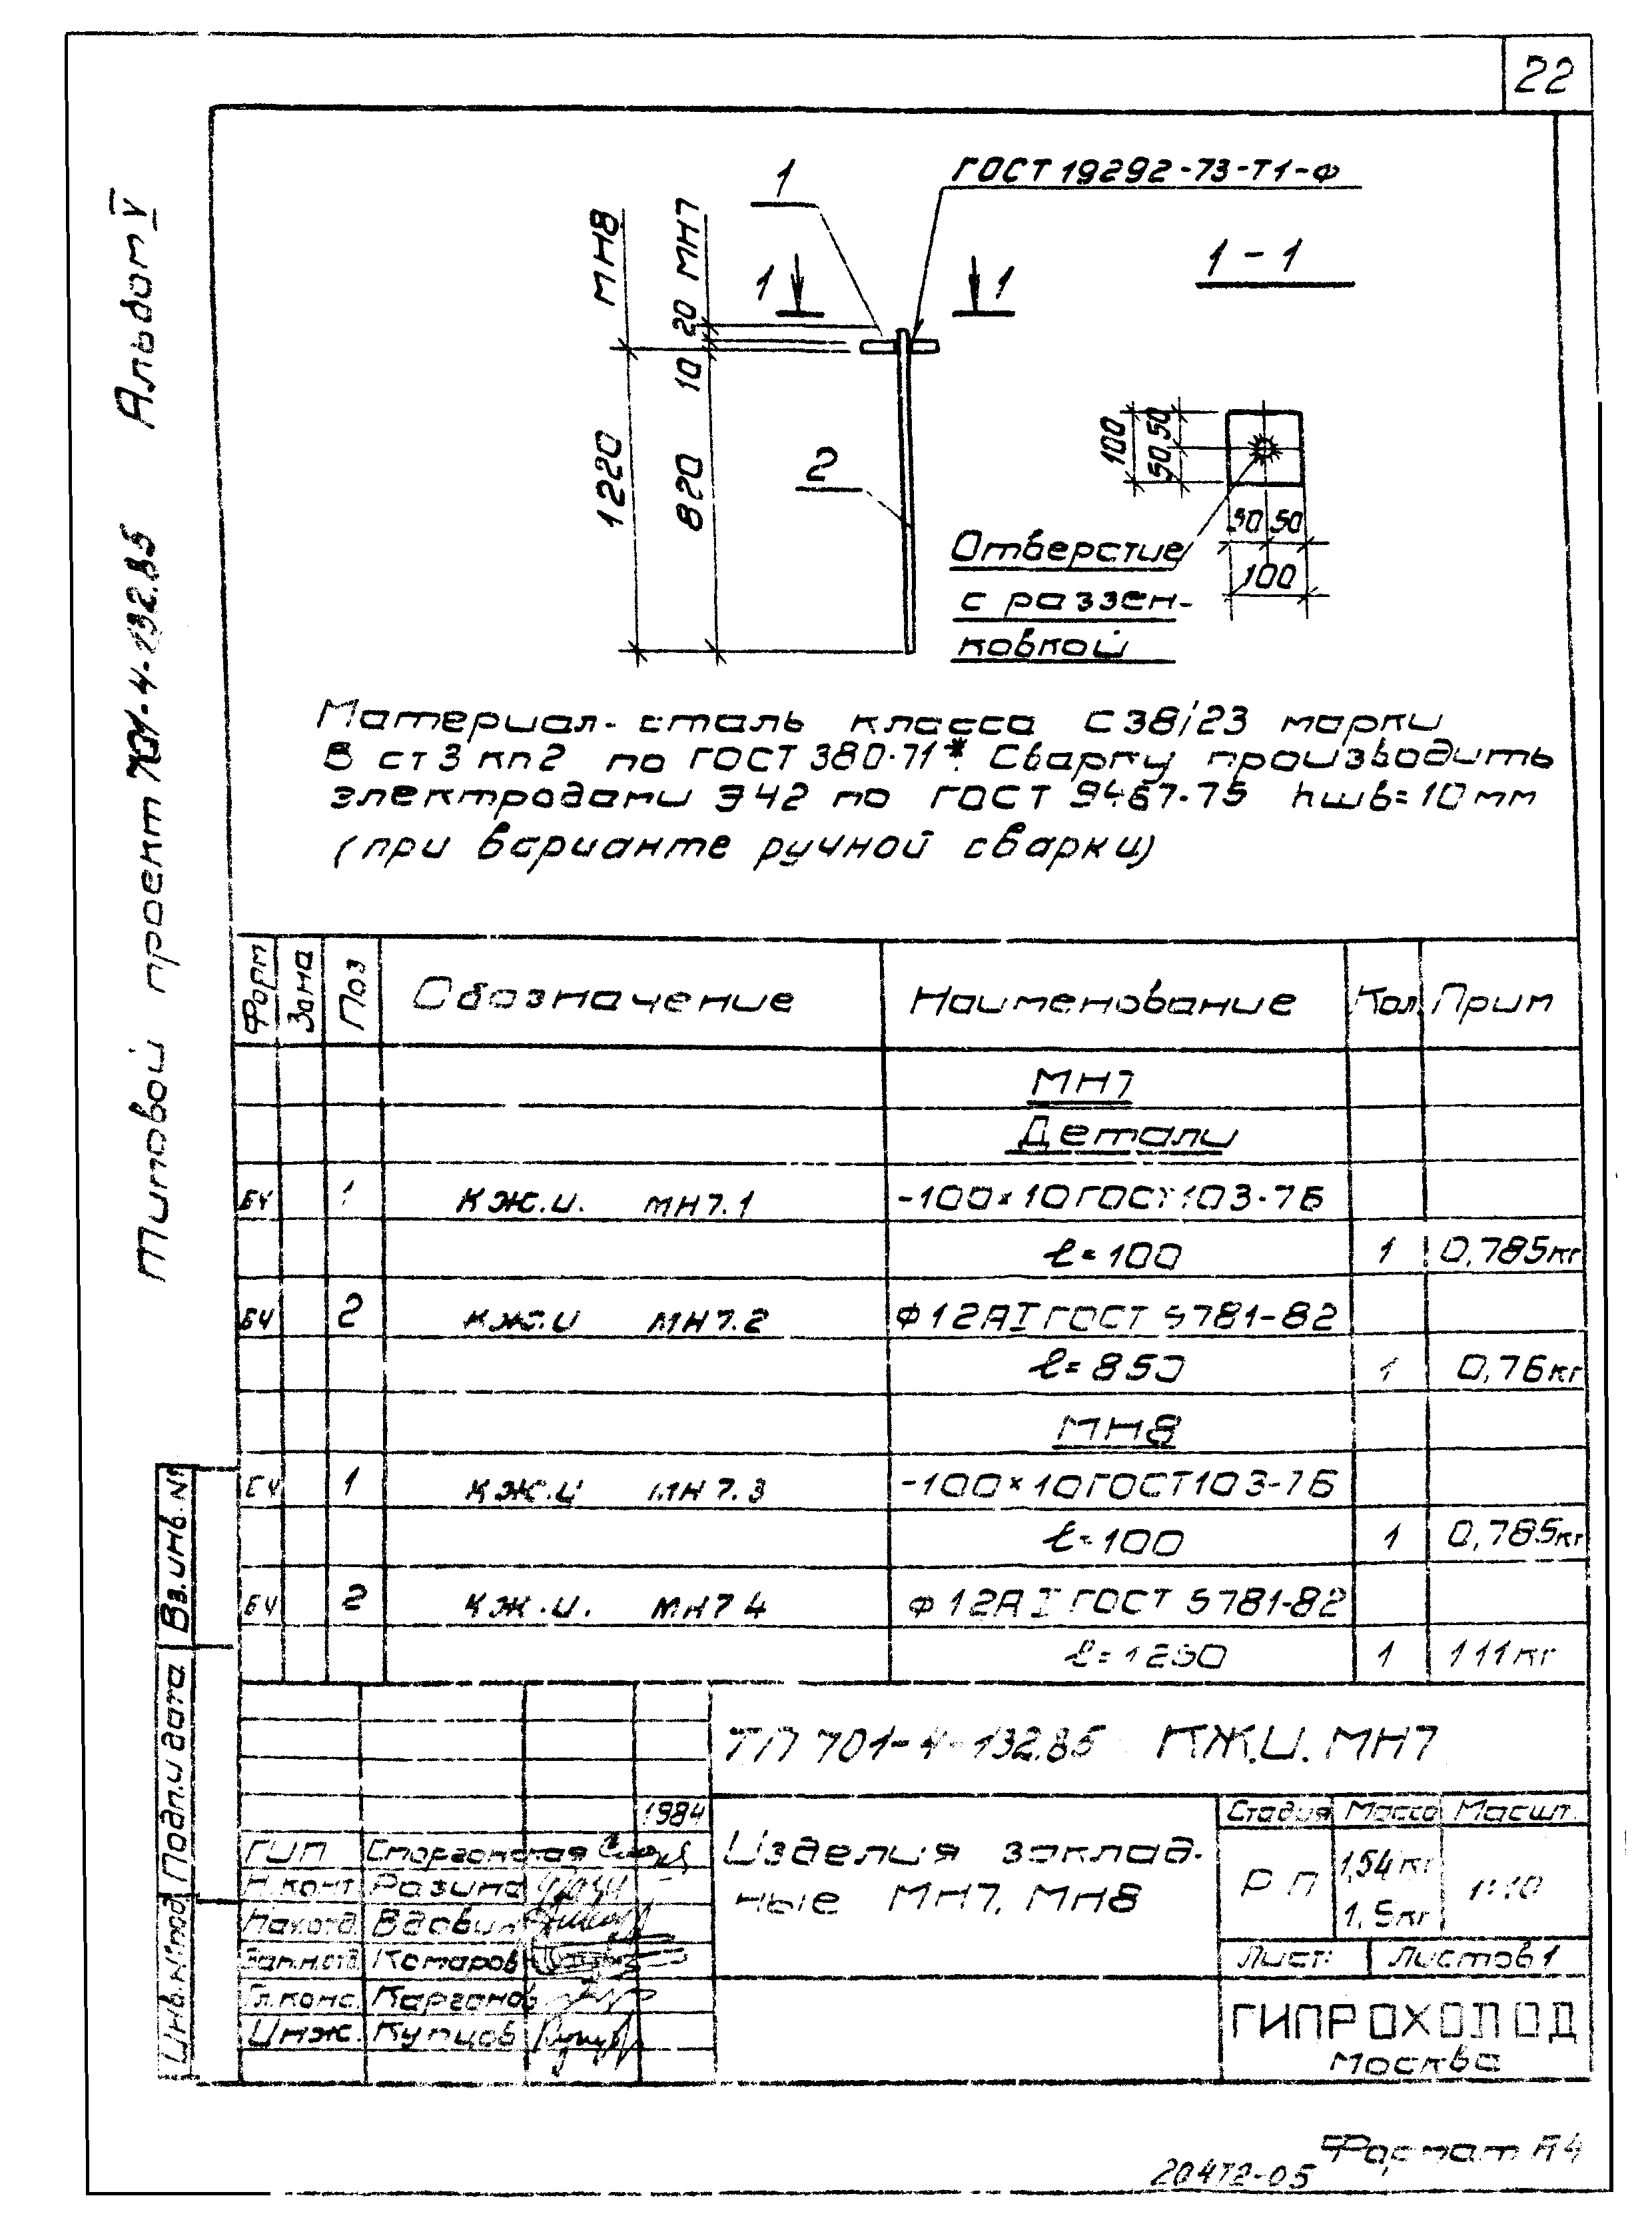 22
Альбом V
Типовой проект 701-4-132.85
1
ГОСТ 19292-73-Т1-Ф
МН8
МН7
1
1
1-1
20
10
1220
820
2
100
50 50
50 50
100
Отверстие
с раззен-
ковкой
Материал- сталь класса С38/23 марки
В ст 3 кп2 по ГОСТ 380-71*. Сварку производить
электродами Э42 по ГОСТ 9467-75 hшв=10мм
(при варианте ручной сварки)
Форм Зона Поз Обозначение Наименование Кол. Прим
МН7
Детали
БЧ 1 КЖ.И. МН7.1 -100×10 ГОСТ 103-76
ℓ=100 1 0,785кг
БЧ 2 КЖ.И МН7.2 Ф12АI ГОСТ 5781-82
ℓ=850 1 0,76кг
МН8
БЧ 1 КЖ.И МН7.3 -100×10 ГОСТ 103-76
ℓ=100 1 0,785кг
БЧ 2 КЖ.И. МН7 4 Ф12АI ГОСТ 5781-82
ℓ=1250 1 111кг
Вз.инв.№
Подп.и дата
Инв.№подл
ТП 701-4-132.85 КЖ.И. МН7
1984
Изделия заклад-
ные МН7, МН8
Стадия Масса Масшт.
РП 1,54кг 1:10
1,9кг
Лист: Листов 1
ГИП
Н.конт Разина
Нач.отд Вдовин
Зап.н.отд Комаров
Гл.конс. Карганов
Инж. Купцов
ГИПРОХОЛОД
Москва
Формат А4
20472-05